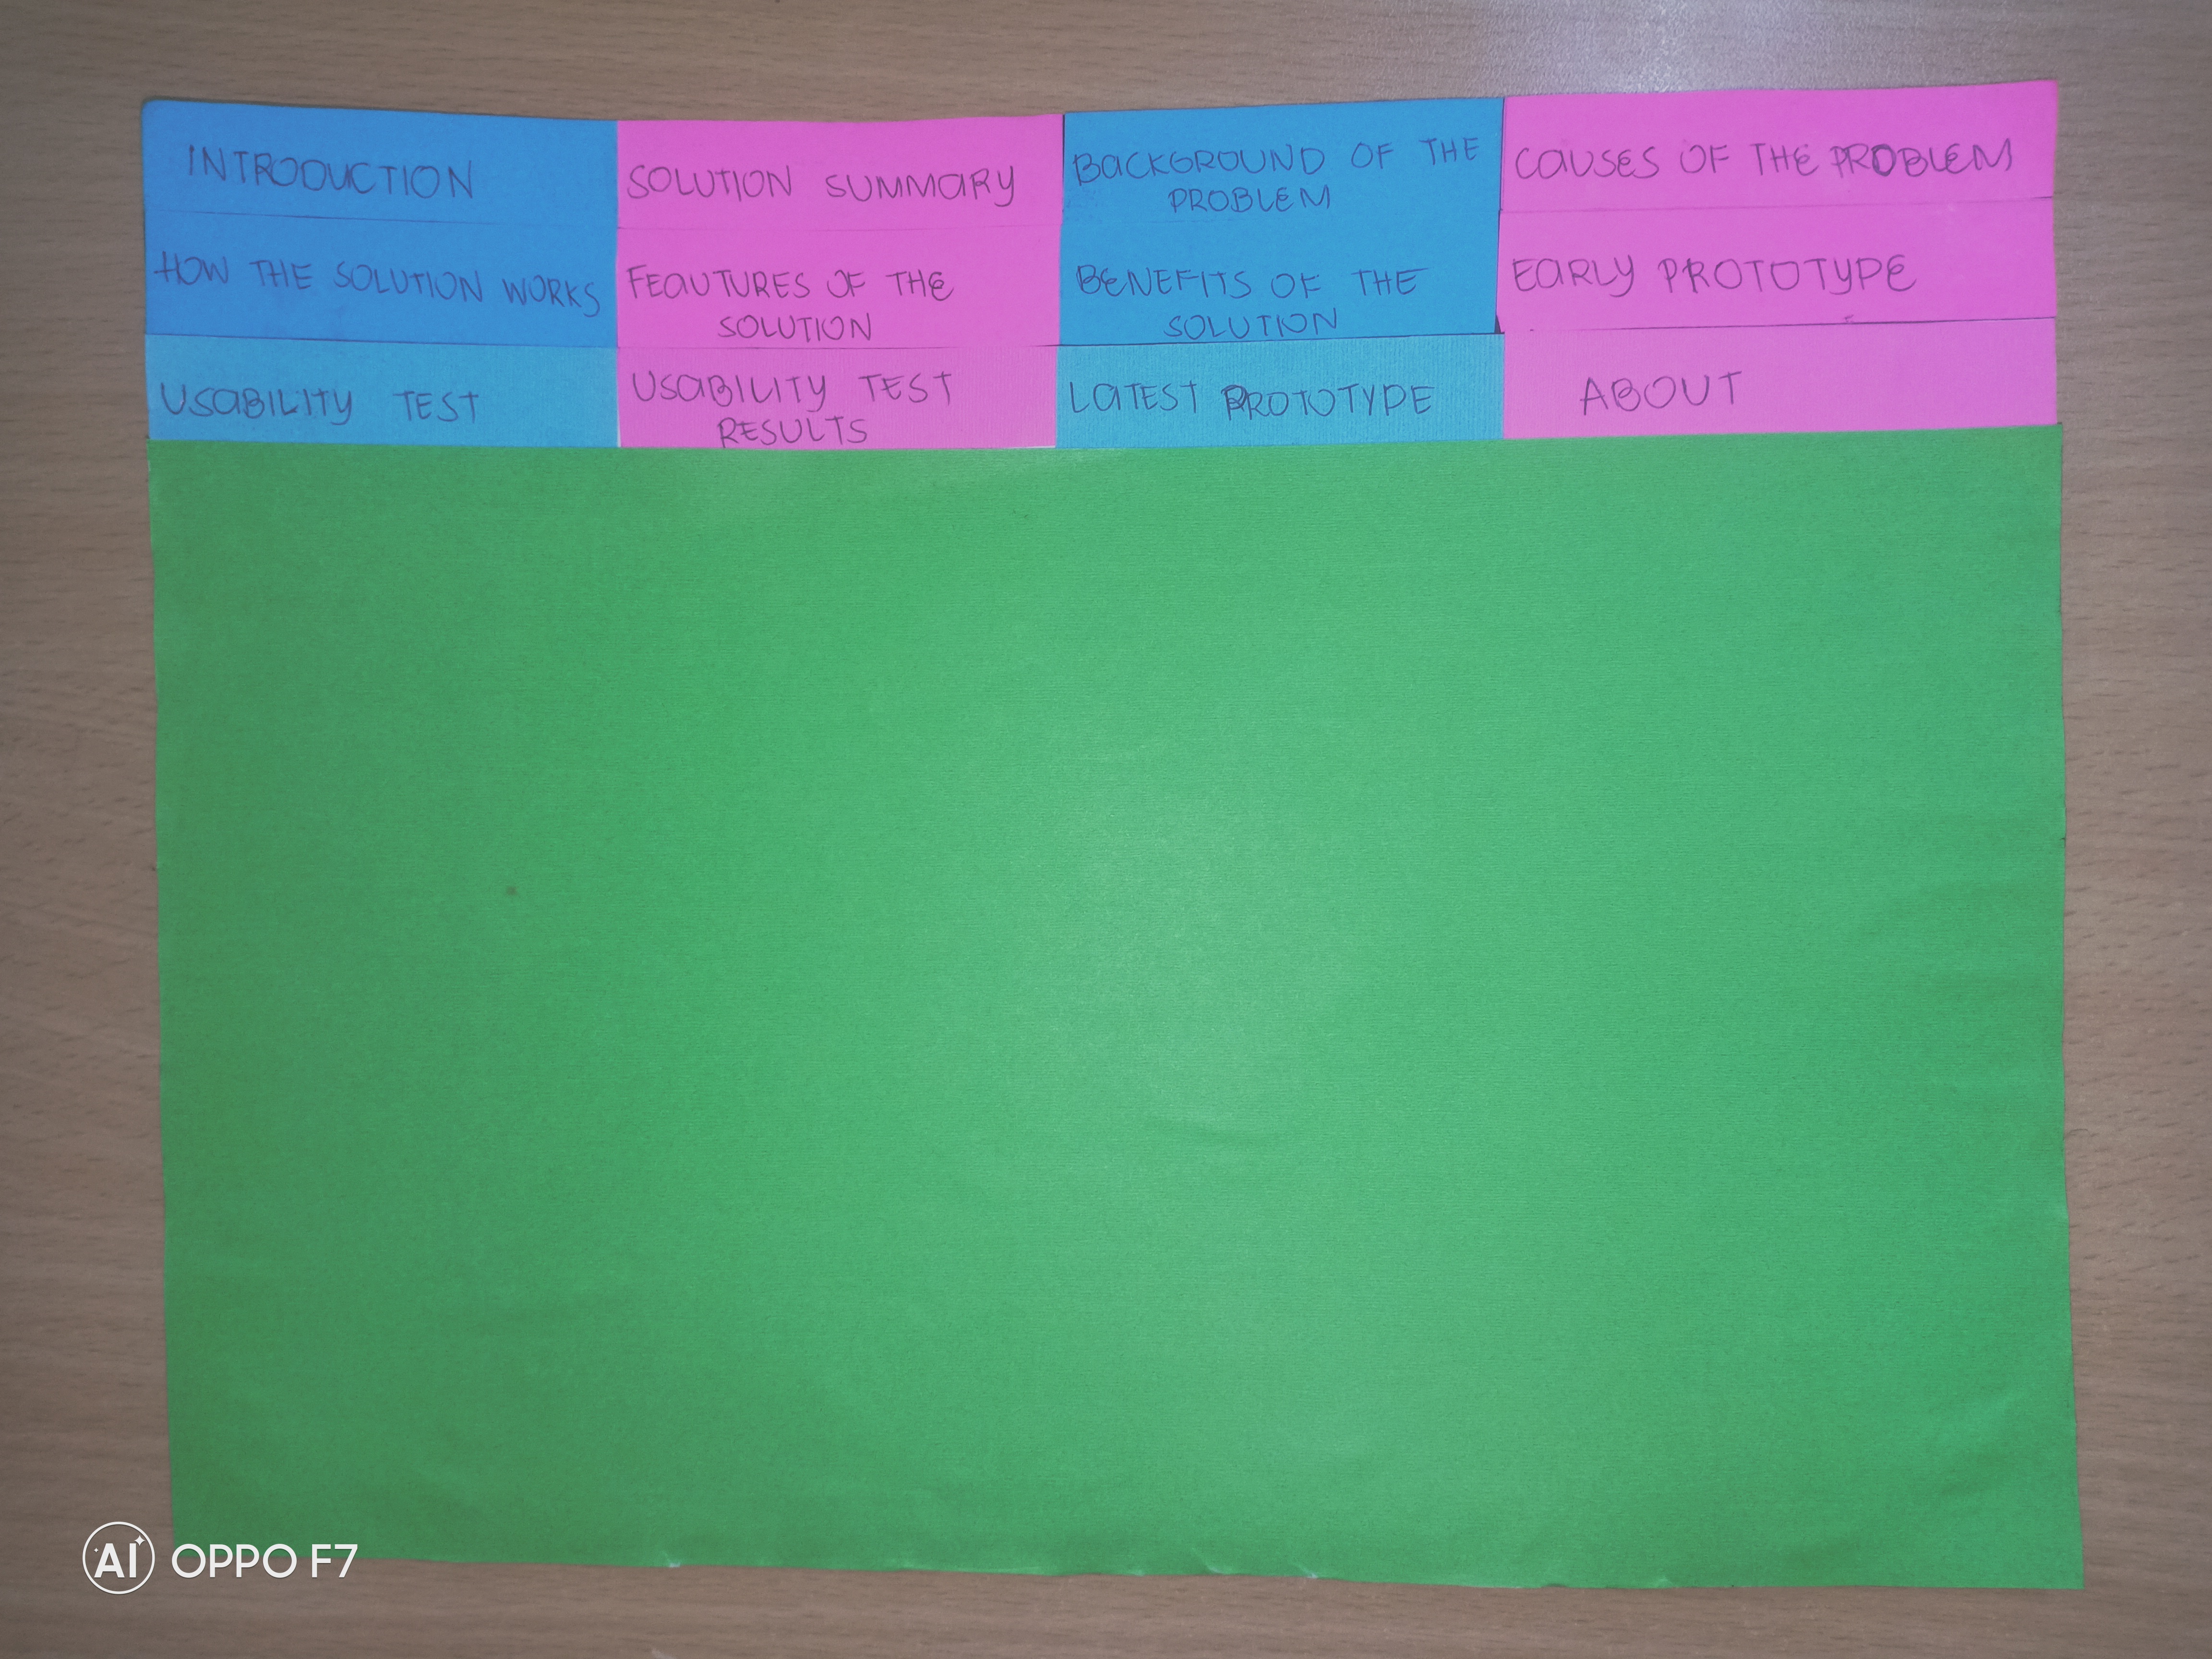 INTRODUCTION
SOLUTION SUMMARY
BACKGROUND OF THE
PROBLEM
CAUSES OF THE PROBLEM
HOW THE SOLUTION WORKS
FEAUTURES OF THE
SOLUTION
BENEFITS OF THE
SOLUTION
EARLY PROTOTYPE
USABILITY TEST
USABILITY TEST
RESULTS
LATEST PROTOTYPE
ABOUT
AI OPPO F7